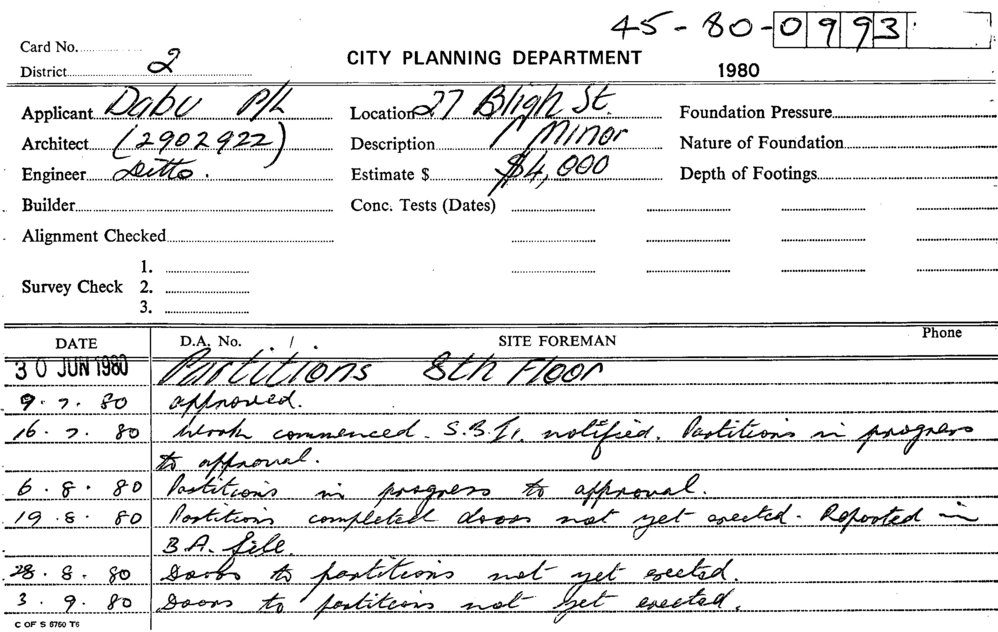 45-80-0993
Card No.
District 2
CITY PLANNING DEPARTMENT
1980
Applicant Dabu P/L Location 27 Bligh St. Foundation Pressure
Architect (2902922) Description Minor Nature of Foundation
Engineer Ditto. Estimate $ $4,000 Depth of Footings
Builder Conc. Tests (Dates)
Alignment Checked
1.
Survey Check 2.
3.
DATE D.A. No. / SITE FOREMAN Phone
30 JUN 1980 Partitions 8th Floor
9.7.80 approved.
16.7.80 Work commenced. S.B.I. notified. Partitions in progress
to approval.
6.8.80 Partitions in progress to approval.
19.8.80 Partitions completed doors not yet erected. Reported in
B.A. file.
28.8.80 Doors to partitions not yet erected.
3.9.80 Doors to partitions not yet erected.
C OF S 8760 T6